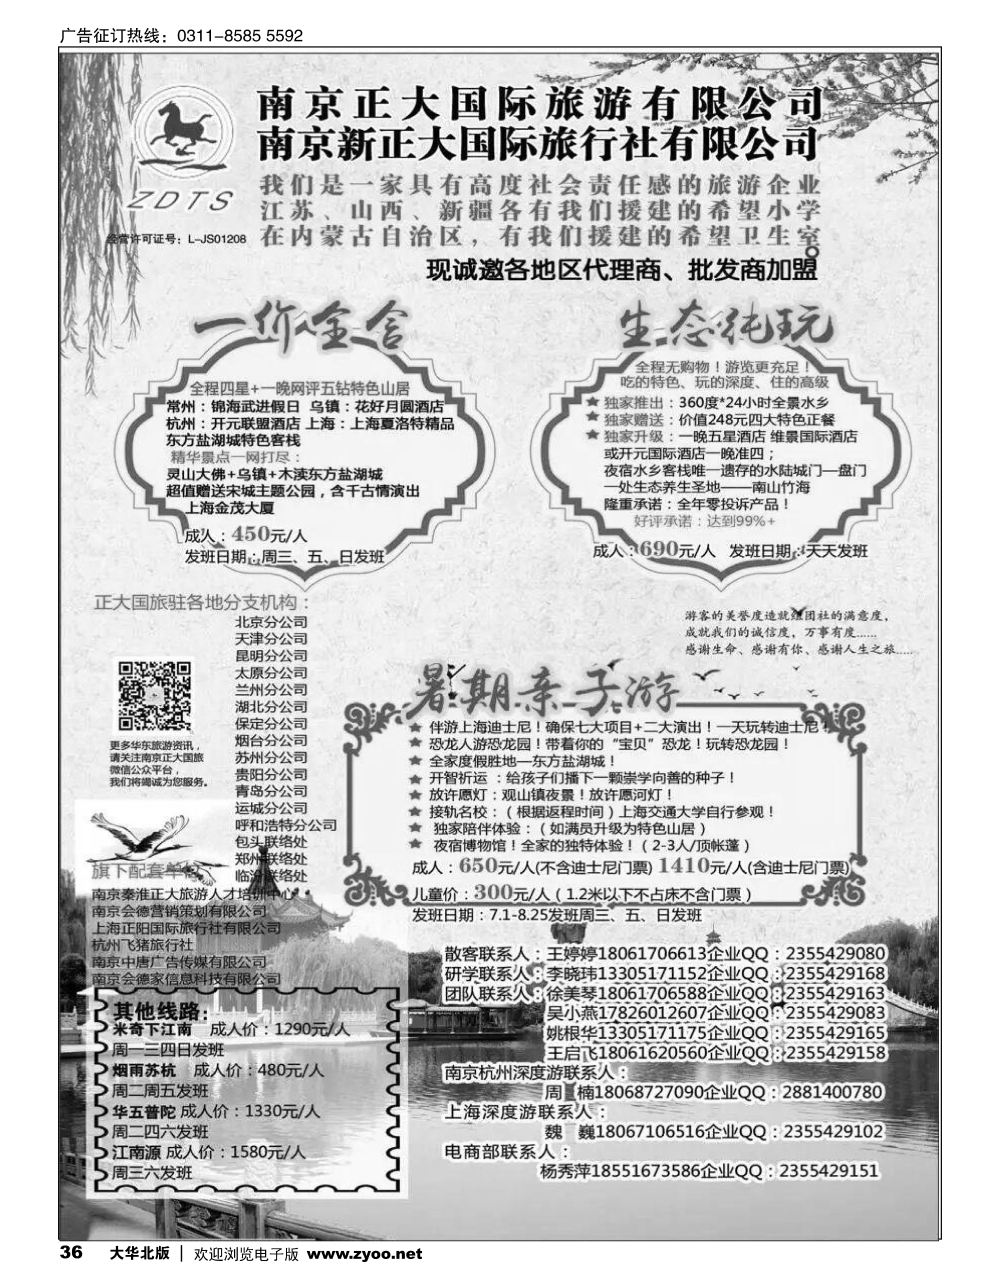 广告征订热线：0311-8585 5592
南京正大国际旅游有限公司
南京新正大国际旅行社有限公司
ZDTS
经营许可证号：L-JS01208
我们是一家具有高度社会责任感的旅游企业
江苏、山西、新疆各有我们援建的希望小学
在内蒙古自治区，有我们援建的希望卫生室。
现诚邀各地区代理商、批发商加盟
一价全含
全程四星+一晚网评五钻特色山居
常州：锦海武进假日 乌镇：花好月圆酒店
杭州：开元联盟酒店 上海：上海夏洛特精品
东方盐湖城特色客栈
精华景点一网打尽：
灵山大佛+乌镇+木渎东方盐湖城
超值赠送宋城主题公园，含千古情演出
上海金茂大厦
成人：450元/人
发班日期：周三、五、日发班
生态纯玩
全程无购物！游览更充足！
吃的特色、玩的深度、住的高级
★ 独家推出：360度*24小时全景水乡
★ 独家赠送：价值248元四大特色正餐
★ 独家升级：一晚五星酒店 维景国际酒店
或开元国际酒店一晚准四；
夜宿水乡客栈唯一遗存的水陆城门—盘门
一处生态养生圣地——南山竹海
隆重承诺：全年零投诉产品！
好评承诺：达到99%+
成人：690元/人 发班日期：天天发班
正大国旅驻各地分支机构：
北京分公司
天津分公司
昆明分公司
太原分公司
兰州分公司
湖北分公司
保定分公司
烟台分公司
苏州分公司
贵阳分公司
青岛分公司
运城分公司
呼和浩特分公司
包头联络处
郑州联络处
临汾联络处
更多华东旅游资讯，
请关注南京正大国旅
微信公众平台，
我们将竭诚为您服务。
游客的美誉度造就组团社的满意度，
成就我们的诚信度，万事有度......
感谢生命、感谢有你、感谢人生之旅.....
暑期亲子游
★ 伴游上海迪士尼！确保七大项目+二大演出！一天玩转迪士尼！
★ 恐龙人游恐龙园！带着你的“宝贝”恐龙！玩转恐龙园！
★ 全家度假胜地—东方盐湖城！
★ 开智祈运：给孩子们播下一颗崇学向善的种子！
★ 放许愿灯：观山镇夜景！放许愿河灯！
★ 接轨名校：（根据返程时间）上海交通大学自行参观！
★ 独家陪伴体验：（如满员升级为特色山居）
★ 夜宿博物馆！全家的独特体验！（2-3人/顶帐蓬）
成人：650元/人(不含迪士尼门票) 1410元/人(含迪士尼门票)
儿童价：300元/人（1.2米以下不占床不含门票）
发班日期：7.1-8.25发班周三、五、日发班
旗下配套单位
南京秦淮正大旅游人才培训中心
南京会德营销策划有限公司
上海正阳国际旅行社有限公司
杭州飞猪旅行社
南京中唐广告传媒有限公司
南京会德家信息科技有限公司
其他线路：
米奇下江南 成人价：1290元/人
周一三四日发班
烟雨苏杭 成人价：480元/人
周二周五发班
华五普陀 成人价：1330元/人
周二四六发班
江南源 成人价：1580元/人
周三六发班
散客联系人：王婷婷18061706613企业QQ：2355429080
研学联系人：李晓玮13305171152企业QQ：2355429168
团队联系人：徐美琴18061706588企业QQ：2355429163
吴小燕17826012607企业QQ：2355429083
姚根华13305171175企业QQ：2355429165
王启飞18061620560企业QQ：2355429158
南京杭州深度游联系人：
周 楠18068727090企业QQ：2881400780
上海深度游联系人：
魏 巍18067106516企业QQ：2355429102
电商部联系人：
杨秀萍18551673586企业QQ：2355429151
36 大华北版 | 欢迎浏览电子版 www.zyoo.net